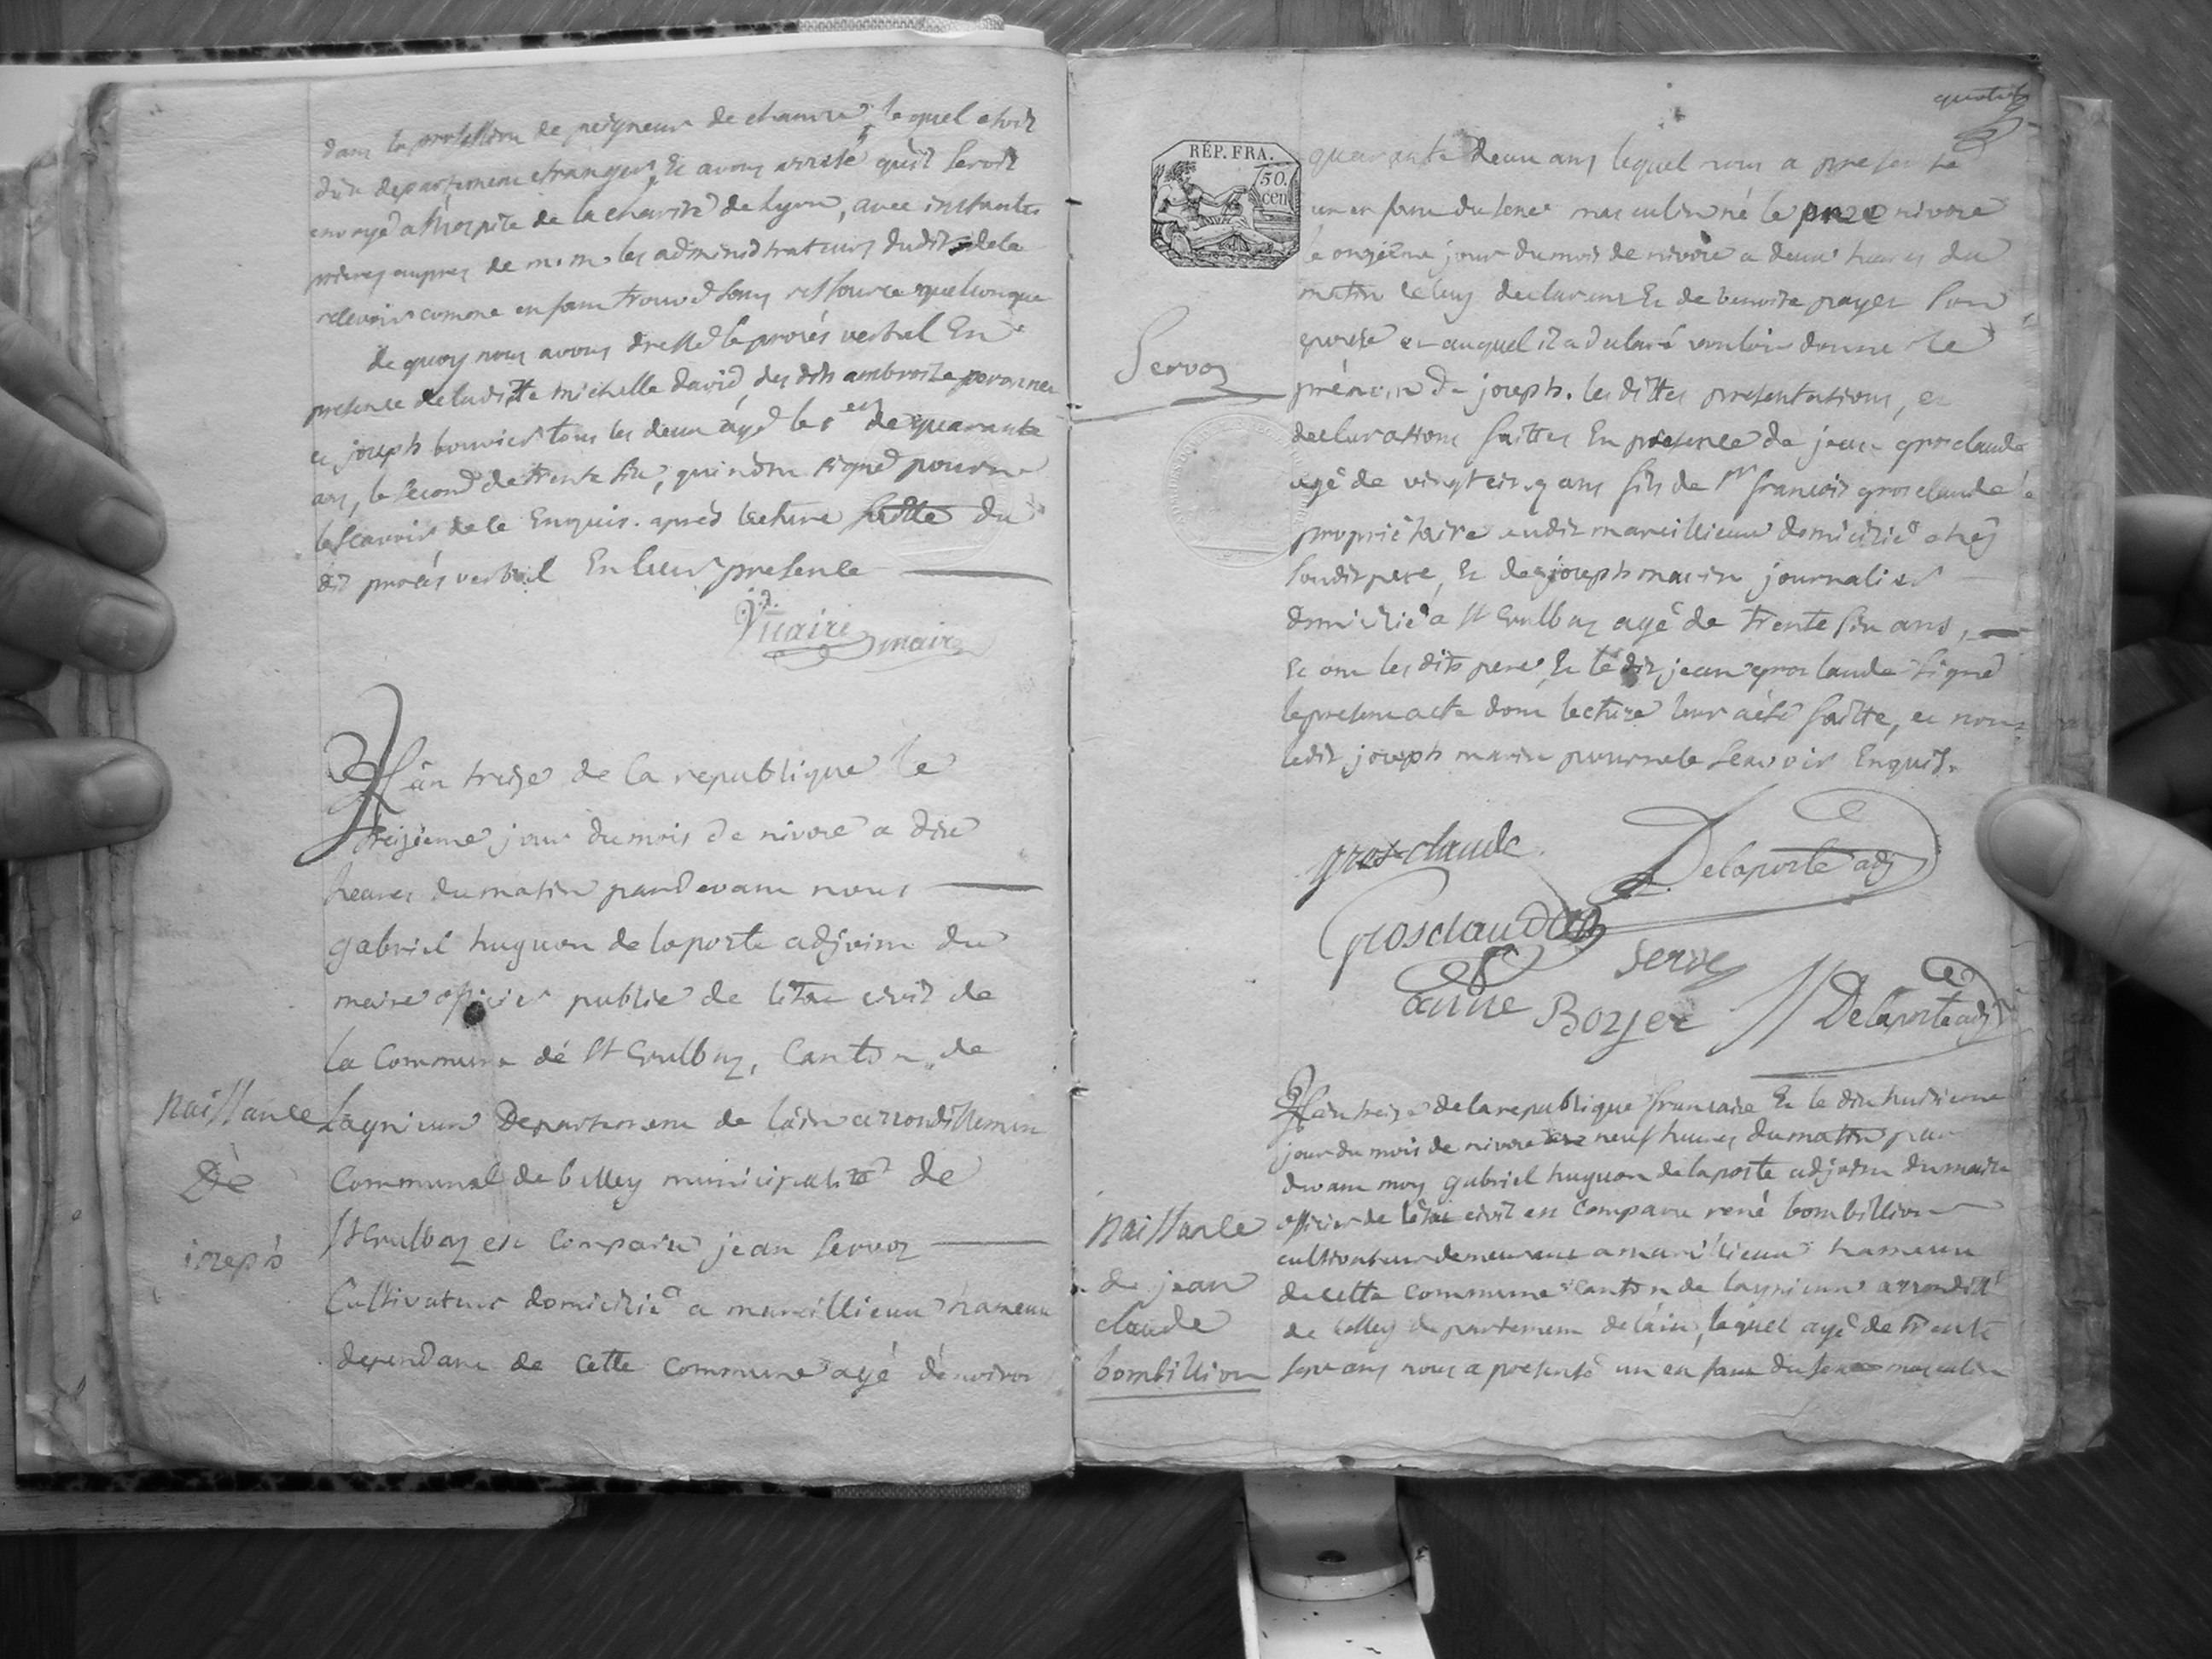 dans la profession de peigneur de chanvre, lequel etoit
dun departement etranger, Et avons arresté qu'il seroit
envoyé a lhospice de la charité de Lyon, avec instantes
prieres aupres de m.m. les administrateurs dudit de le
relevoir comme enfant trouvé sans ressource quelconque
de quoy nous avons dressé le procés verbal En
presence de laditte michelle david, des dits ambroise
et joseph bouvier tous les deux agé le 1er de quarante
ans, le second de trente six, qui n'ont signé pour ne
le scavoir de ce Enquis. aprés lecture faitte du
dit procés verbal En leur presence
maire
L'an treize de la republique le
treizieme jour du mois de nivose a dix
heures du matin pardevant nous
gabriel huguon de laporte adjoint du
maire officier public de létat civil de
la Commune dé St Eulbaz, Canton de
Lagnieux Departement de lain arrondissement
Communal de belley municipalité de
St Eulbaz est Comparu jean Servoz
Cultivateur domicilié a mareillieux hameau
dependant de cette commune agé d'environ
Naissance
De
joseph
RÉP. FRA.
50.
cen
Servoz
quarante deux ans lequel nous a presenté
un enfant du sexe masculin né le onze nivose
le onzième jour du mois de nivose a deux heures du
matin de luy declarant Et de benoite payer son
epouse et auquel il a declaré vouloir donner le
prénom de joseph. les dittes presentations, et
declarations faittes En presence de jean grosclaude
agé de vingt cinq ans fils de sr francois grosclaude
propriétaire audit mareillieux domicilié chez
sondit pere, Et de joseph marin journalier
domicilié a St Eulbaz agé de trente six ans,
Et ont lesdits pere Et ledit jean grosclaude signé
le present acte dont lecture leur a été faitte, et non
ledit joseph marin pour ne le scavoir Enquis.
gros-claude
Delaporte adj
Grosclaude
servoz
anne Boyer
Delaporte adj
L'an treize de la republique francaise Et le dix huitieme
jour du mois de nivose neuf heures du matin par
devant moy gabriel huguon de laporte adjoint du maire
officier de létat civil est Comparu rené bombillion
cultivateur demeurant a mareillieux hameau
de cette commune canton de lagnieux arrondisst
de belley departement de lain, lequel agé de trente
sept ans nous a presenté un enfant du sexe masculin
Naissance
de jean
claude
bombillion